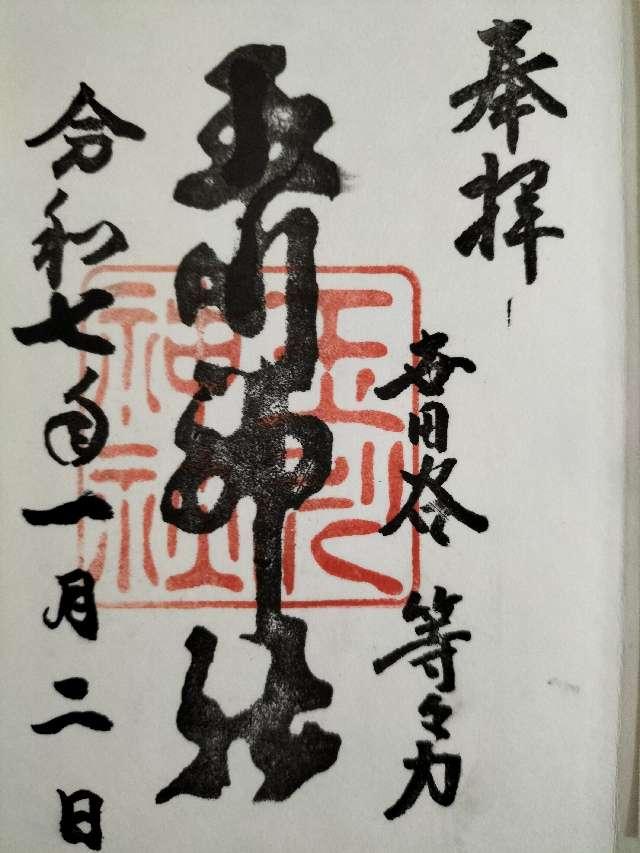 奉拝
世田谷 等々力
玉川神社
玉川
神社
令和七年一月二日